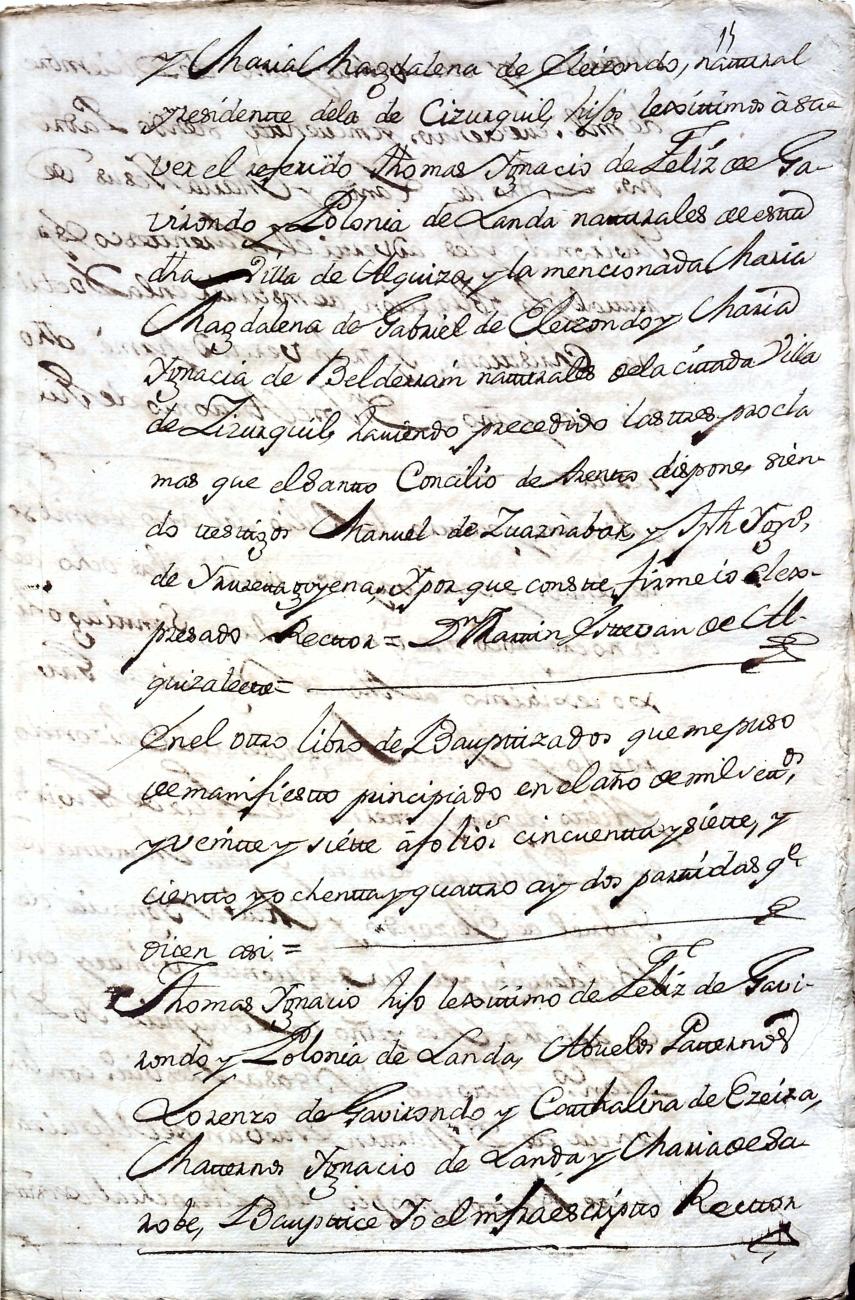 15
y Maria Magdalena de Eleizondo, nattural
y residentte dela de Cizurquil, hijos lexittimos à sa-
ver el referido Thomas Ygnacio de Feliz de Ga-
virondo y Polonia de Landa natturales de estta
dha Villa de Alquiza, y la mencionada Maria
Magdalena de Gabriel de Eleizondo y Maria
Ygnacia de Belderrain natturales de la cittada Villa
de Zizurquil, haviendo precedido las ttres procla
mas que el Santto Concilio de trentto dispone, sien-
do ttesttigos Manuel de Zuaznabar, y Jph Ygnº
de Yruretagoyena, Y por que constte, firme io el ex-
presado Recttor = Dn Marttin Esttevan de Al-
quizalette =
En el ottro libro de Bapttizados que me puso
de manifiestto principiado en el año de mil settos
y veintte y siette à folios cincuentta y siette, y
cientto y ochentta y quattro ay dos parttidas qe
dicen asi =
Thomas Ygnacio hijo lexittimo de Feliz de Gavi-
rondo y Polonia de Landa, Abuelos Patternos
Lorenzo de Gavirondo y Catthalina de Ezeiza,
Matternos Ygnacio de Landa y Maria de Sa-
robe, Baupttice Yo el infraescriptto Recttor